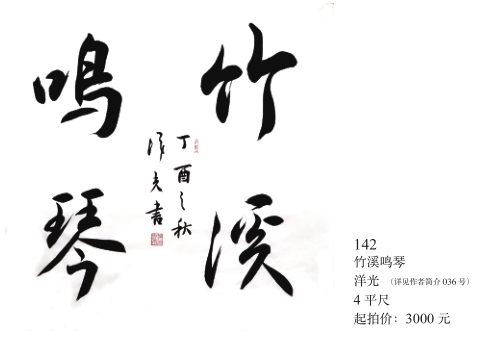 竹溪
鸣琴
丁酉之秋
洋光书
142
竹溪鸣琴
洋光 （详见作者简介 036 号）
4 平尺
起拍价：3000 元